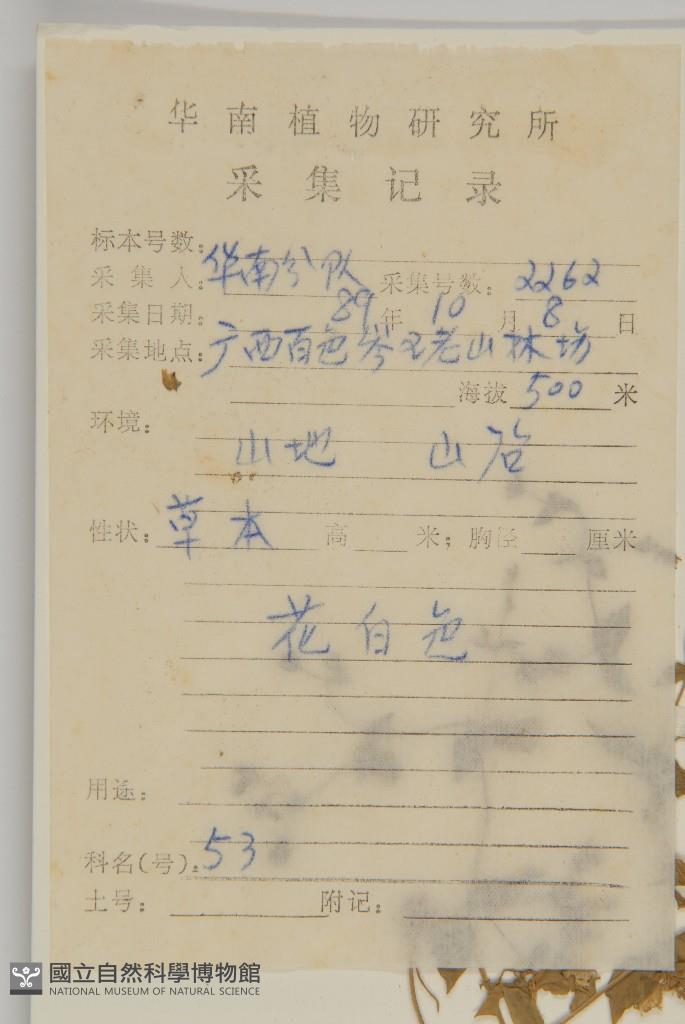 华南植物研究所
采集记录
标本号数:
采集人:华南分队 采集号数:2262
采集日期:89年10月8日
采集地点:广西百色岑王老山林场
海拔500米
环境:
山地 山谷
性状:草本 高 米;胸径 厘米
花白色
用途:
科名(号):53
土号: 附记:
國立自然科學博物館
NATIONAL MUSEUM OF NATURAL SCIENCE